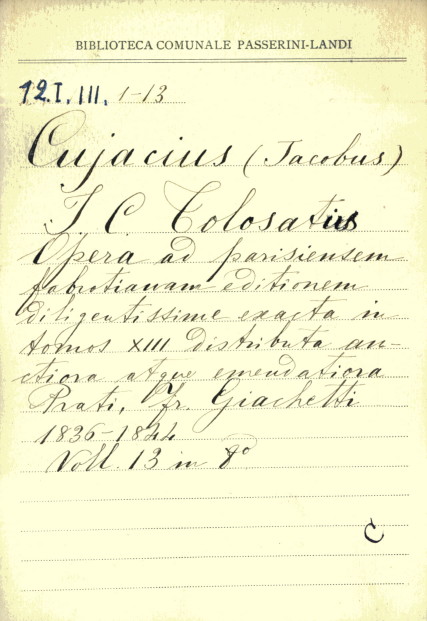 BIBLIOTECA COMUNALE PASSERINI-LANDI
12.I.III. 1-13
Cujacius (Jacobus)
J. C. Tolosatis
Opera ad parisiensem
fabrotianam editionem
diligentissime exacta in
tomos XIII distributa au-
ctiora atque emendatiora
Prati, Fr. Giachetti
1836-1844
Voll. 13 in 8°
C